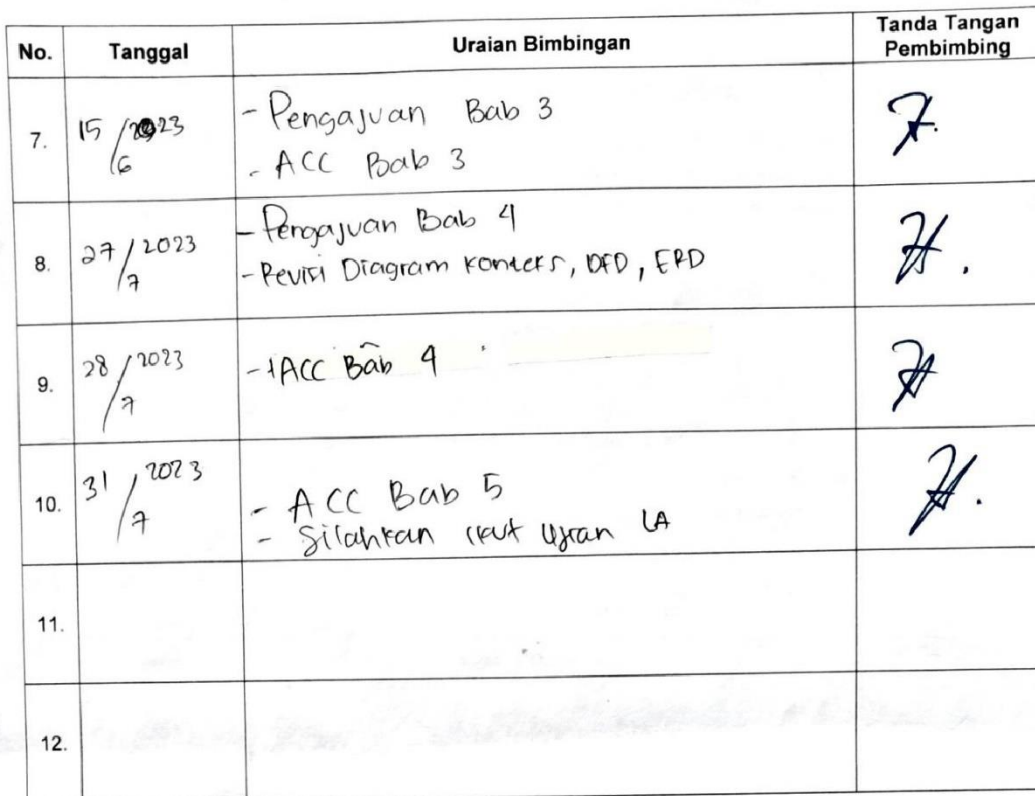 No. Tanggal Uraian Bimbingan Tanda Tangan Pembimbing
7. 15/6 2023 - Pengajuan Bab 3
- ACC Bab 3
8. 27/7 2023 - Pengajuan Bab 4
- Revisi Diagram konteks, DFD, ERD
9. 28/7 2023 - ACC Bab 4
10. 31/7 2023 - ACC Bab 5
- Silahkan ikut Ujian LA
11.
12.